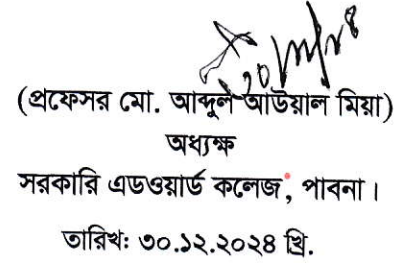 (প্রফেসর মো. আব্দুল আউয়াল মিয়া)
অধ্যক্ষ
সরকারি এডওয়ার্ড কলেজ, পাবনা।
তারিখ: ৩০.১২.২০২৪ খ্রি.